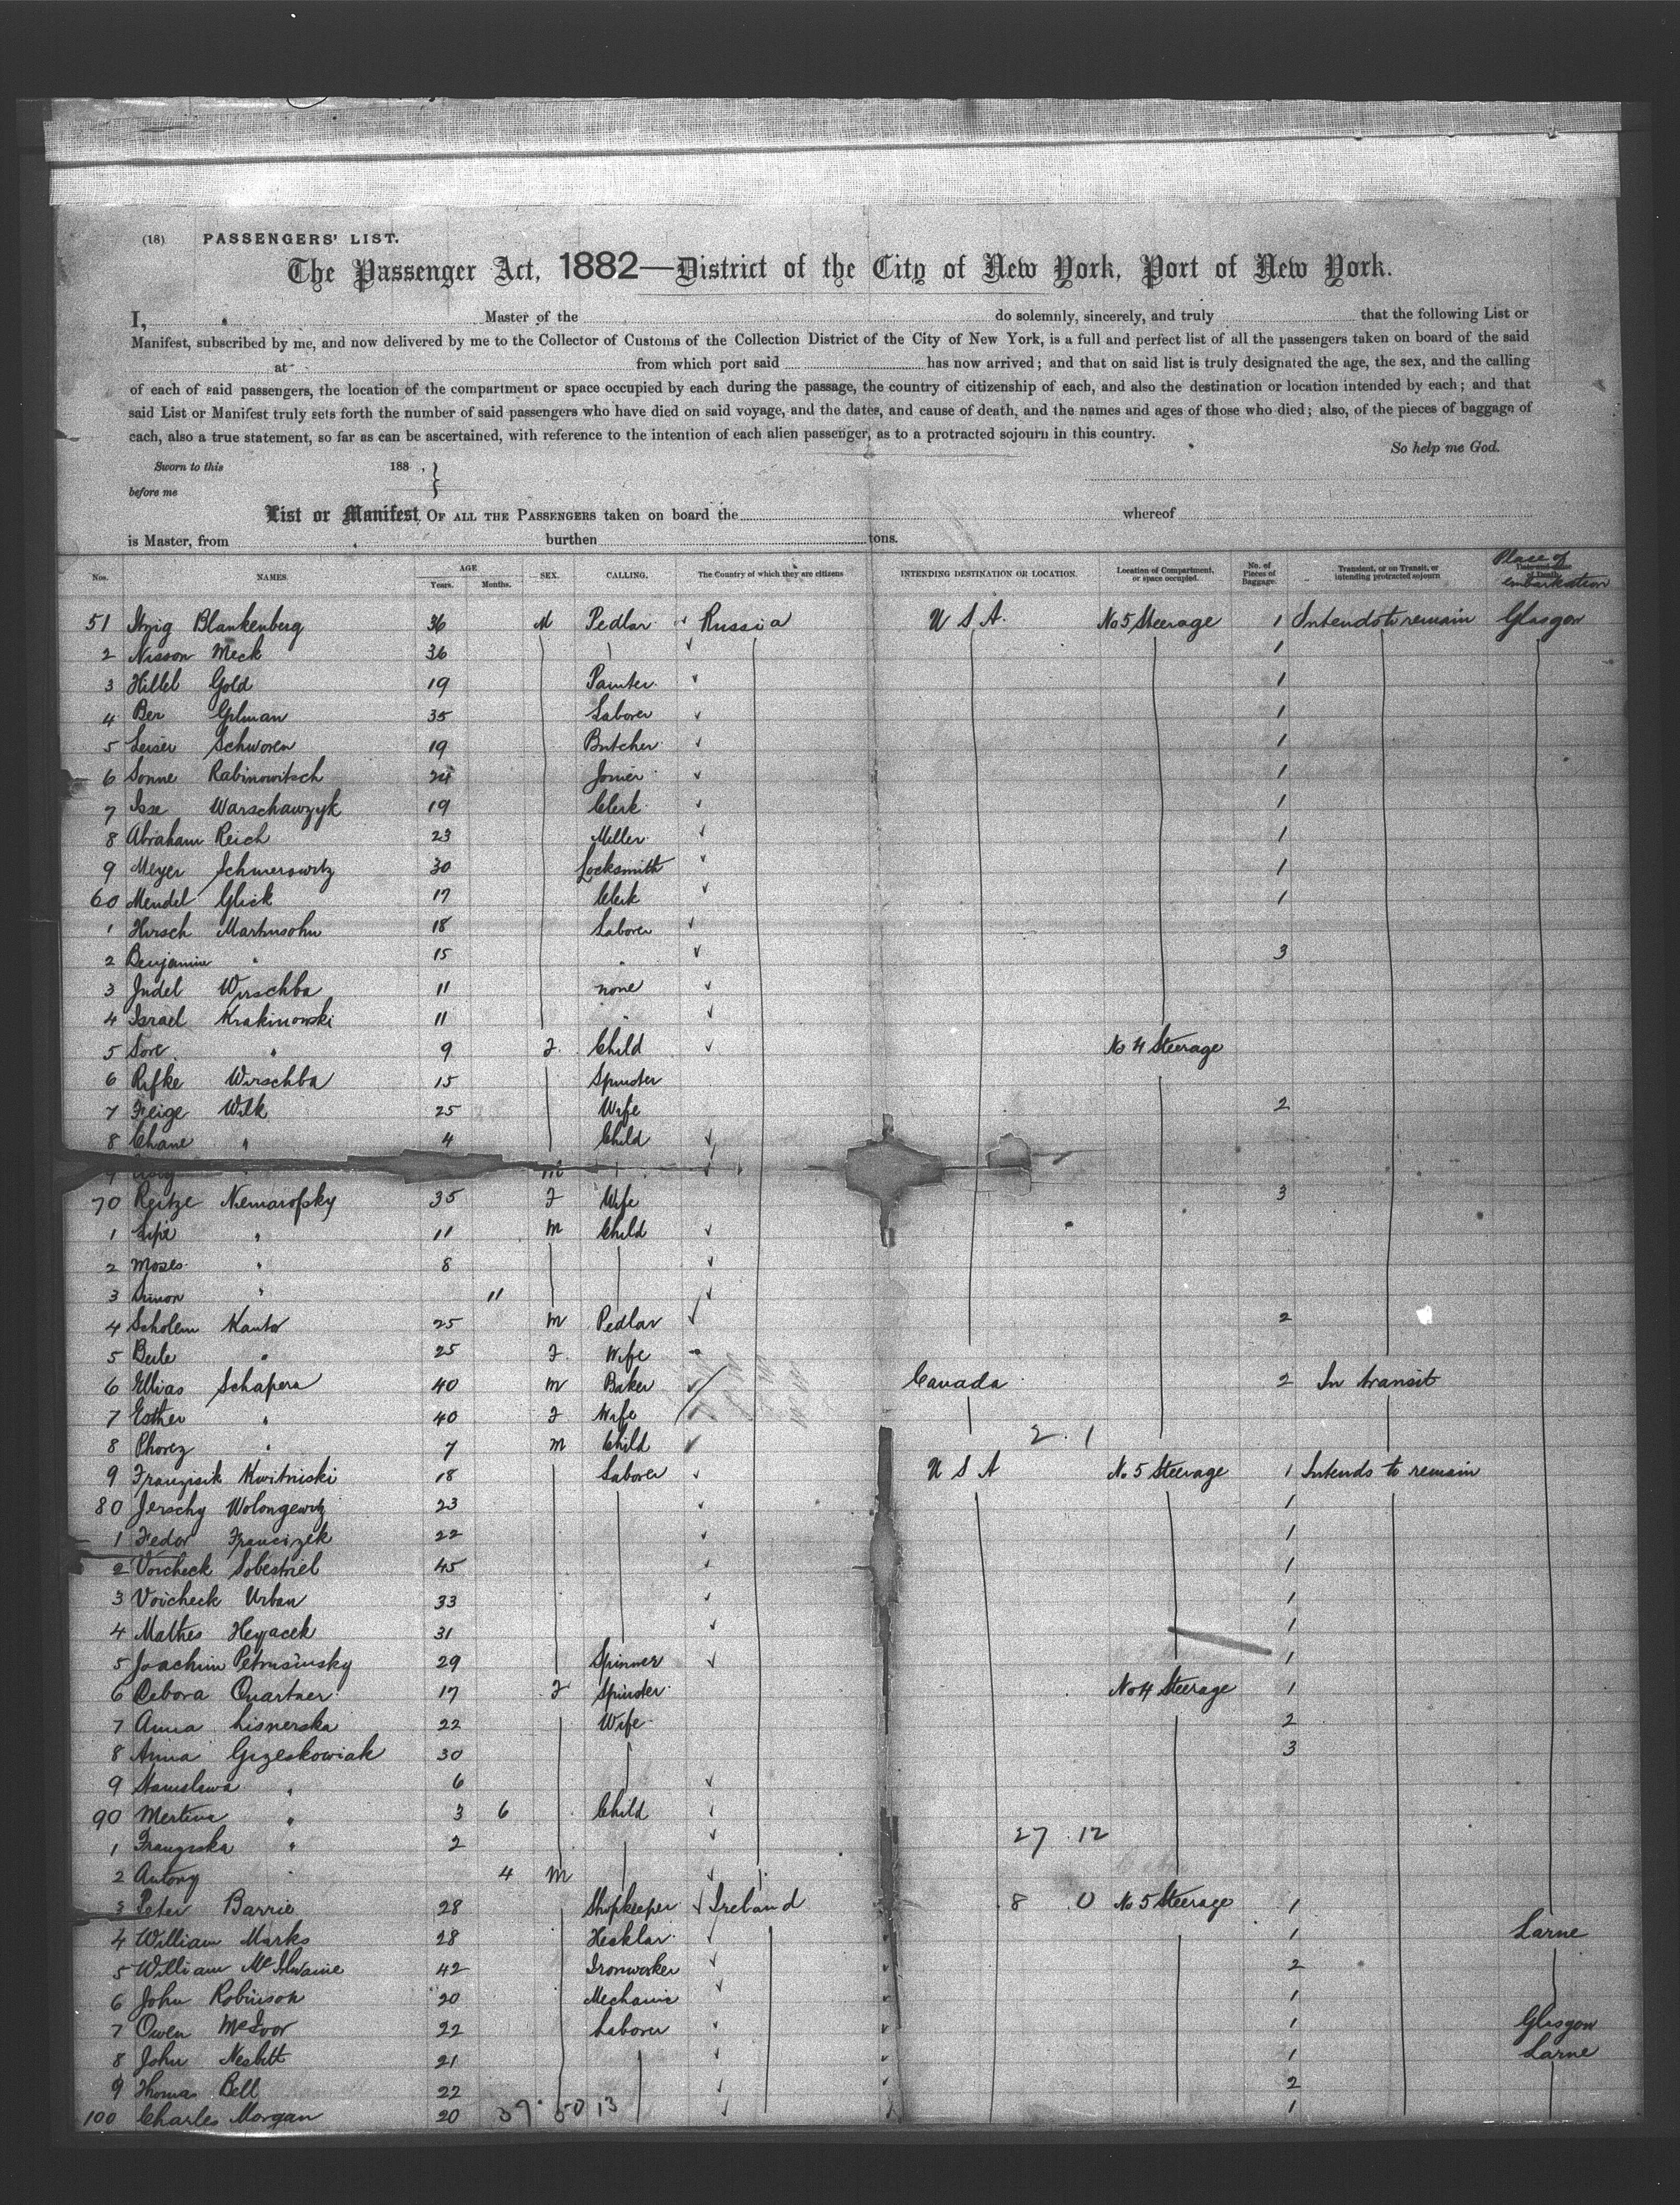 (18) PASSENGERS' LIST.
The Passenger Act, 1882—District of the City of New York, Port of New York.
I, Master of the do solemnly, sincerely, and truly that the following List or
Manifest, subscribed by me, and now delivered by me to the Collector of Customs of the Collection District of the City of New York, is a full and perfect list of all the passengers taken on board of the said
at from which port said has now arrived; and that on said list is truly designated the age, the sex, and the calling
of each of said passengers, the location of the compartment or space occupied by each during the passage, the country of citizenship of each, and also the destination or location intended by each; and that
said List or Manifest truly sets forth the number of said passengers who have died on said voyage, and the dates, and cause of death, and the names and ages of those who died; also, of the pieces of baggage of
each, also a true statement, so far as can be ascertained, with reference to the intention of each alien passenger, as to a protracted sojourn in this country.
So help me God.
Sworn to this 188 , }
before me
List or Manifest OF ALL THE PASSENGERS taken on board the whereof
is Master, from burthen tons.
Nos. NAMES. AGE Years. Months. SEX. CALLING. The Country of which they are citizens INTENDING DESTINATION OR LOCATION. Location of Compartment, or space occupied. No. of Pieces of Baggage. Transient, or on Transit, or intending protracted sojourn Place of embarkation
51 Itzig Blankenberg 36 M Pedlar Russia U S A. No 5 Steerage 1 Intends to remain Glasgow
2 Nisson Meck 36 1
3 Hillel Gold 19 Painter 1
4 Ber Gilman 35 Laborer 1
5 Leiser Schworen 19 Butcher 1
6 Sonne Rabinowitsch 24 Joiner 1
7 Isse Warschawzyk 19 Clerk 1
8 Abraham Reich 23 Miller 1
9 Meyer Schmerowitz 30 Locksmith 1
60 Mendel Glick 17 Clerk 1
1 Hirsch Martinsohn 18 Laborer
2 Benjamin " 15 " 3
3 Judel Wirschba 11 none
4 Israel Krakinowski 11 "
5 Sore " 9 F. Child No 4 Steerage
6 Rifke Wirschba 15 Spinster
7 Feige Wilk 25 Wife 2
8 Chane " 4 Child
9 " M
70 Reitze Niemarofsky 35 F Wife 3
1 Lipe " 11 M Child
2 Moses " 8
3 Simon " 11
4 Scholem Kantor 25 M Pedlar 2
5 Beile " 25 F. Wife
6 Ellias Schapera 40 M Baker Canada 2 In transit
7 Esther " 40 F Wife
8 Phorez " 7 M Child 2. 1
9 Franzisik Kwitniski 18 Laborer U S A No 5 Steerage 1 Intends to remain
80 Jerschy Wolongewitz 23 1
1 Fedor Francizek 22 1
2 Voicheck Sobestriel 45 1
3 Voicheck Urban 33 1
4 Mathes Heyacek 31 1
5 Joachim Petrusinsky 29 Spinner 1
6 Debora Quartner 17 F Spinster No 4 Steerage 1
7 Anna Lisnerska 22 Wife 2
8 Anna Grzeskowiak 30 3
9 Stanislawa " 6
90 Mertina " 3 6 Child
1 Franziska " 2 27 . 12
2 Antony 4 M
3 Peter Barrie 28 Shopkeeper Ireland 8 . 0 No 5 Steerage 1
4 William Marks 28 Hecklar 1 Larne
5 William McIlwaine 42 Ironworker 2
6 John Robinson 20 Mechanic 1
7 Owen McIvor 22 Laborer 1 Glasgow
8 John Nesbitt 21 1 Larne
9 Thomas Bell 22 2
100 Charles Morgan 20 37 50 13 1